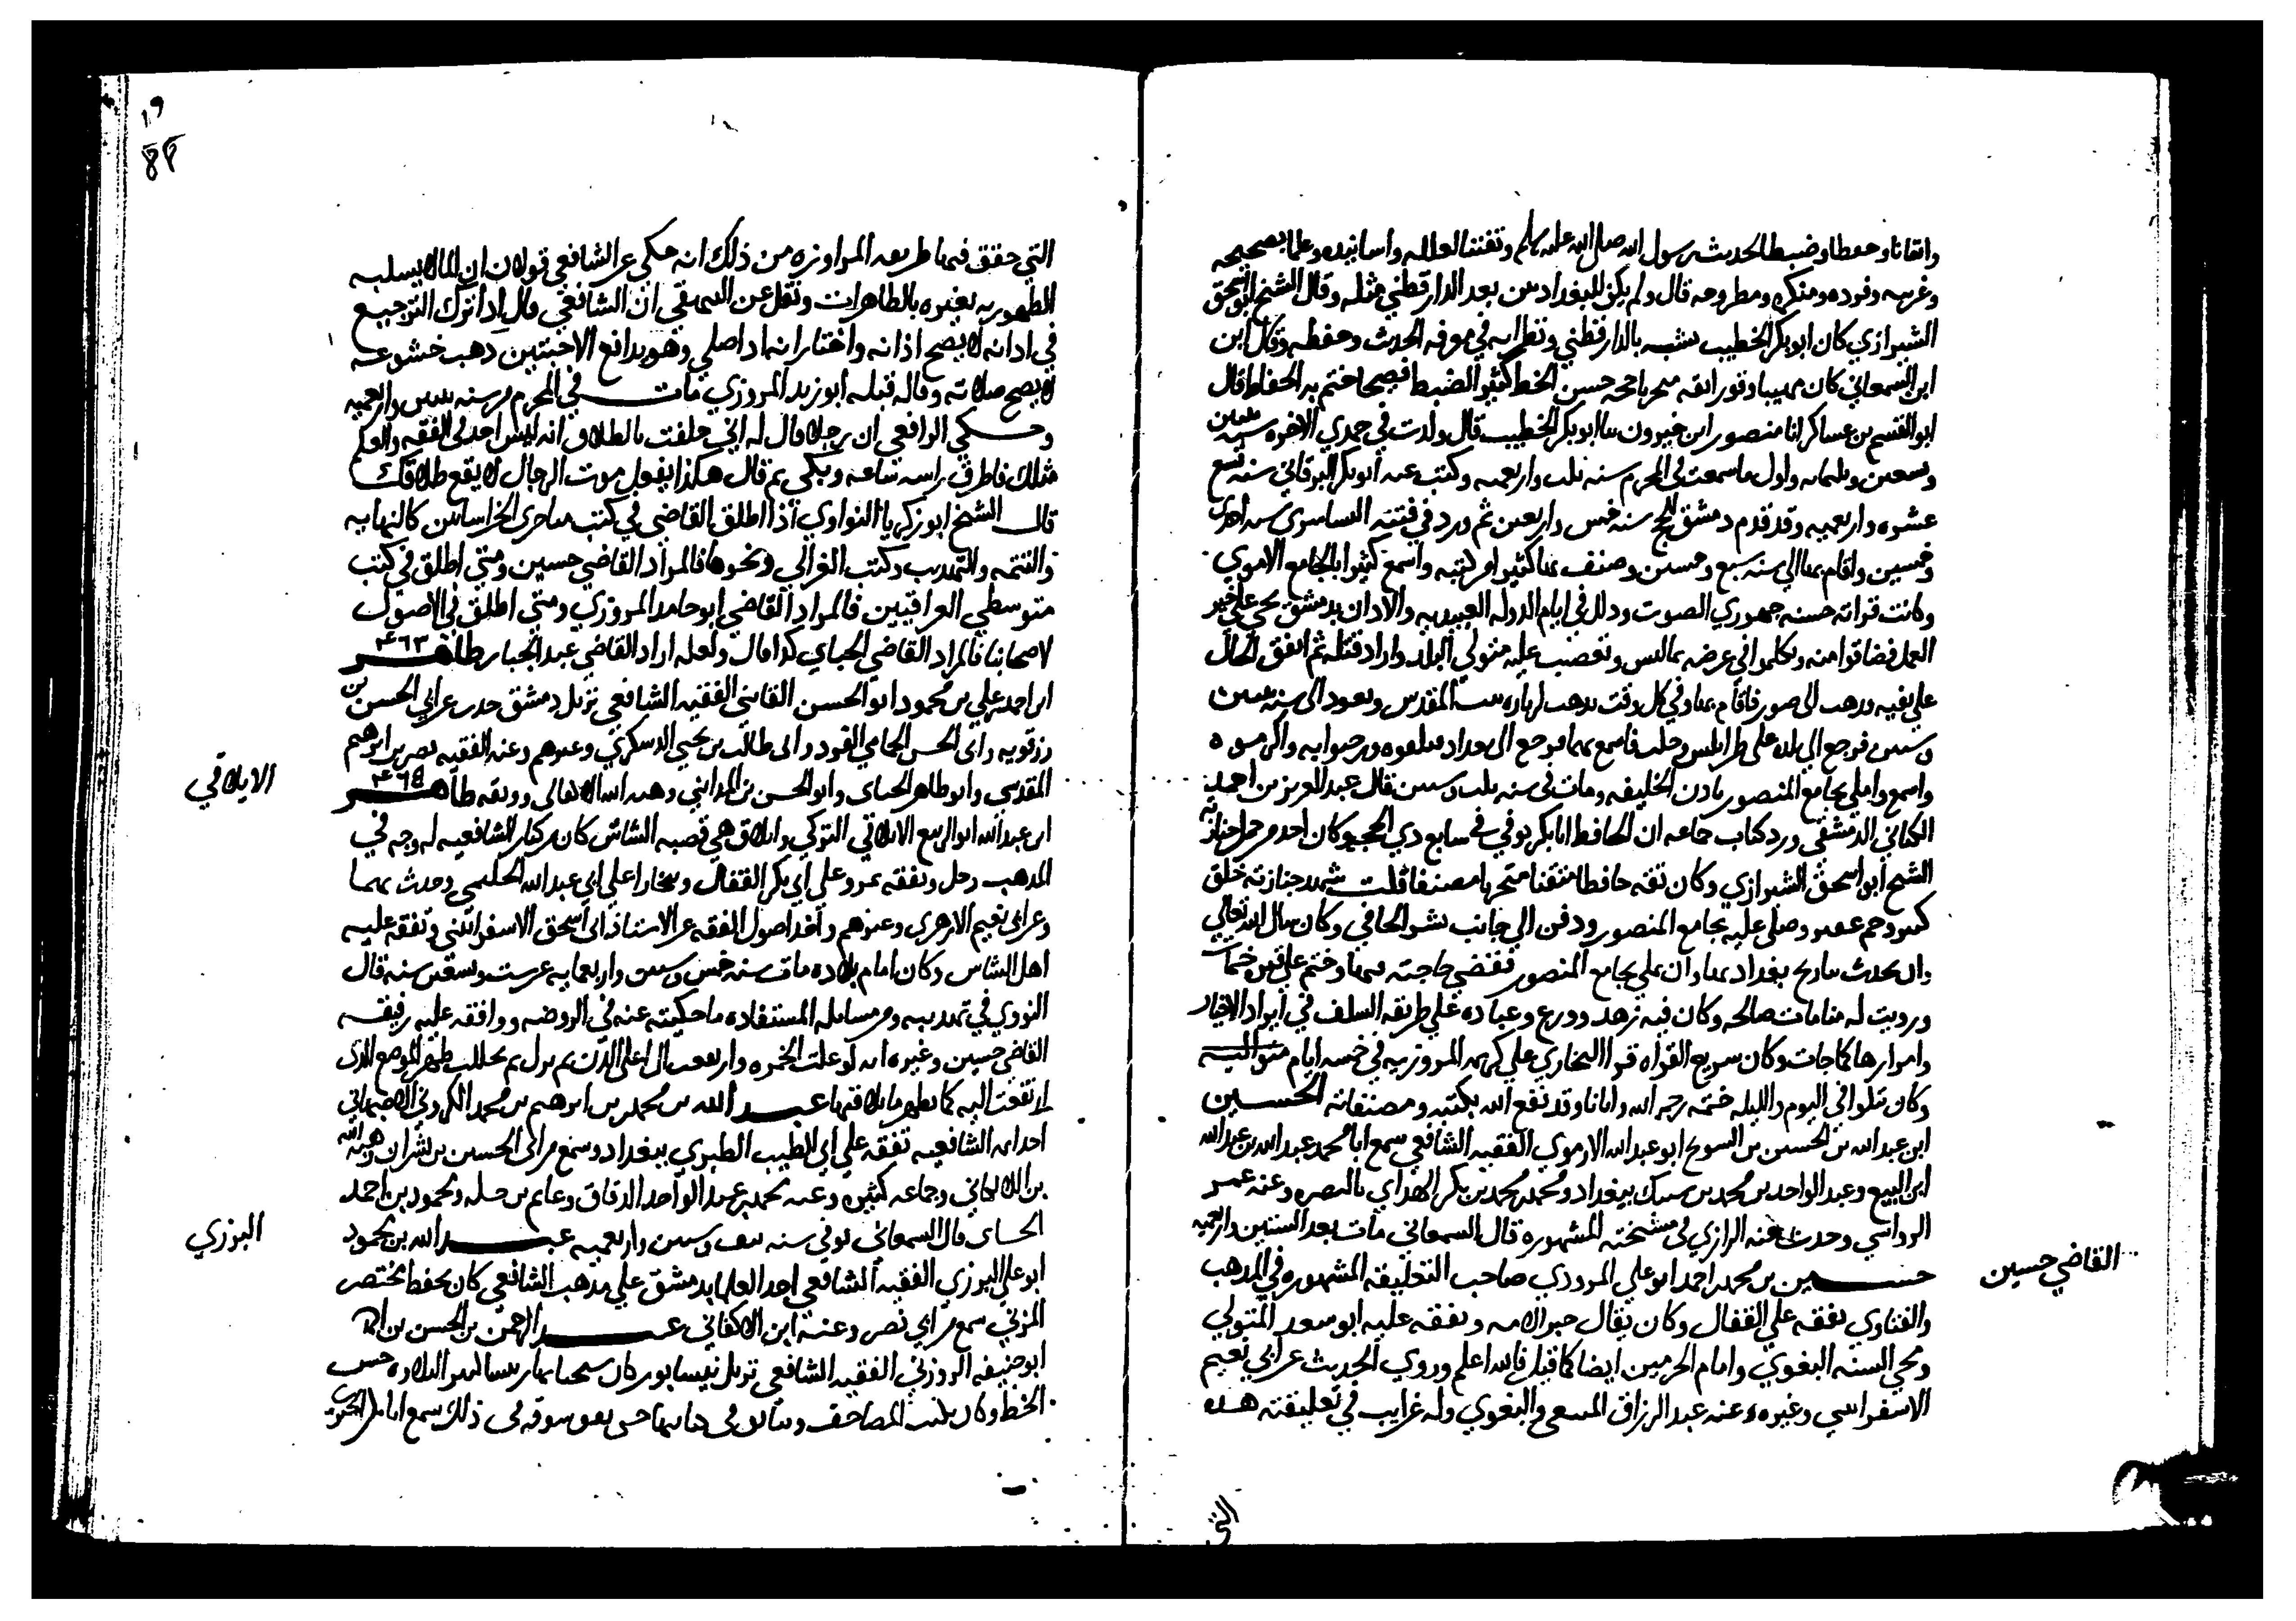 واتقانا وحفظا وضبطا لحديث رسول الله صلى الله عليه وسلم وتفننا لعلله واسانيده وعلما بصحيحه
وغريبه وفرده ومنكره ومطروحه قال ولم يكن للبغداديين بعد الدارقطني مثله وقال الشيخ ابو اسحق
الشيرازي كان ابو بكر الخطيب يشبه بالدارقطني ونظرائه في معرفة الحديث وحفظه وقال ابن
ابن السمعاني كان مهيبا وقورا ثقه متحريا حجه حسن الخط كثير الضبط فصيحا ختم به الحفاظ قال
ابو القسم بن عساكر انا منصور ابن خيرون سا ابو بكر الخطيب قال ولدت في جمدي الاخره سنه اثنين
وتسعين وثلثمايه واول ما سمعت في المحرم سنه ثلث واربعميه وكتب عنه ابو بكر البرقاني سنه تسع
عشره واربعميه وقد قدم دمشق للحج سنه خمس واربعين ثم ورد في فتنة البساسيري سنه احدى
وخمسين واقام بها الى سنه سبع وخمسين وصنف بها كثيرا من كتبه واسمع كثيرا بالجامع الاموي
وكانت قراته حسنه جهوري الصوت وذلك في ايام الدوله العبيديه والاذان بدمشق بحي على خير
العمل فضاقوا منه وتكلموا في عرضه بما ليس وتعصب عليه متولي البلد واراد قتله ثم اتفق الحال
على نفيه فذهب الى صور فاقام بها وفي كل وقت يذهب لزيارة بيت المقدس ويعود الى سنه ستين
وستين فرجع الى بلده على طرابلس وحلب فاسمع بهما فرجع الى بغداد فتلقوه ورحبوا به واكرموه
واسمع واملى بجامع المنصور باذن الخليفه ومات في سنه ثلث وستين قال عبد العزيز بن احمد
الكتاني الدمشقي ورد كتاب جماعه ان الحافظ ابا بكر توفي في سابع ذي الحجه وكان احد من حمل جنازته
الشيخ ابو اسحق الشيرازي وكان ثقه حافظا متقنا متحريا مصنفا قلت شهد جنازته خلق
كثير وجم غفير وصلى عليه بجامع المنصور ودفن الى جانب بشر الحافي وكان سال الله تعالى
وان يحدث بتاريخ بغداد بها وان يملي بجامع المنصور فقضى حاجته فيها وختم على قبره ختمات
ورويت له منامات صالحه وكان فيه زهد وورع وعباده على طريقه السلف في ايراد الاخبار
وامرارها كما جات وكان سريع القراه قرا البخاري على كريمه المروزيه في خمسه ايام متواليه
وكان يتلوا في اليوم والليله ختمه رحمه الله وايانا وقد نفع الله بكتبه ومصنفاته الحسين
ابن عبد الله بن الحسين بن الشويخ ابو عبد الله الارموي الفقيه الشافعي سمع ابا محمد عبد الله بن عبد الله
ابن البيع وعبد الواحد بن محمد بن سبنك ببغداد ومحمد بن محمد بن بكر الهزاي بالبصره وعنه عمر
الرواسي وحدث عنه الرازي في مشيخته المشهوره قال السمعاني مات بعد الستين واربعميه
حسين بن محمد بن احمد ابو علي المروزي صاحب التعليقه المشهوره في المذهب
القاضي حسين
والفتاوي تفقه على القفال وكان يقال حبر الامه وتفقه عليه ابو سعد المتولي
ومحي السنه البغوي وامام الحرمين ايضا كما قيل فالله اعلم وروى الحديث عن ابي نعيم
الاسفرايني وغيره وعنه عبد الرزاق المنيعي والبغوي وله غرايب في تعليقته هذه
التي
التي حقق فيها طريقه المراوزه من ذلك انه حكي عن الشافعي قولان ان الماء يسلبه
الطهوريه تغيره بالطاهرات ونقل عن البيهقي ان الشافعي قال اذا ترك الترجيع
في اذانه لا يصح اذانه واختار انه اذا صلى وهو يدافع الاخبثين ذهب خشوعه
لا يصح صلاته وقاله قبله ابو زيد المروزي مات في المحرم من سنه ستين واربعميه
وحكي الرافعي ان رجلا قال له اني حلفت بالطلاق انه ليس احد في الفقه والعلم
مثلك فاطرق راسه ساعه وبكى ثم قال هكذا يفعل موت الرجال لا يقع طلاقك
قال الشيخ ابو زكريا النواوي اذا اطلق القاضي في كتب متاخري الخراسانين كالنهايه
والتتمه والتهذيب وكتب الغزالي ونحوها فالمراد القاضي حسين ومتى اطلق في كتب
متوسطي العراقيين فالمراد القاضي ابو حامد المروزي ومتى اطلق في الاصول
لاصحابنا فالمراد القاضي الجباي كذا قال ولعله اراد القاضي عبد الجبار طاهر ٤٦٣
ابن احمد بن علي بن محمود ابو الحسن القايني الفقيه الشافعي نزيل دمشق حدث عن ابي الحسن بن
رزقويه وابي الحسن الحمامي المقري وابي طالب بن يحيي الدسكري وغيرهم وعنه الفقيه نصر بن ابرهيم
المقدسي وابو طاهر الحناي وابو الحسن بن الموازيني وهبه الله الاكفاني ووثقه طاهر ٤٦٥
ابن عبد الله ابو الربيع الايلاقي التركي وايلاق هي قصبه الشاش كان من كبار الشافعيه له وجه في
الايلاقي
المذهب رحل وتفقه بمرو على ابي بكر القفال وببخارا على ابي عبد الله الحليمي وحدث بهما
وعن ابي نعيم الازهري وغيرهم واخذ اصول الفقه عن الاستاذ ابي اسحق الاسفرايني وتفقه عليه
اهل الشاش وكان امام بلاده مات سنه خمس وستين واربعمايه عن ست وتسعين سنه قال
النووي في تهذيبه ومن مسايله المستفاده ما حكيته عنه في الروضه ووافقه عليه رفيقه
القاضي حسين وغيره انه لو غلت الخمره وارتفعت الى اعلى الدن ثم نزل ثم تخللت طهر الموضع الذي
ارتفعت اليه كما يطهر ما يلاقيها عبد الله بن محمد بن ابرهيم بن محمد الكروني الاصبهاني
احد ايمه الشافعيه تفقه على ابي الطيب الطبري ببغداد وسمع من ابي الحسين بن بشران وهبه الله
بن اللالكاني وجماعه كثيره وعنه محمد بن عبد الواحد الدقاق وغانم بن خالد ومحمود بن احمد
قال السمعاني توفي سنه نيف وستين واربعميه عبد الله بن محمود
البرزي
ابو علي البرزي الفقيه الشافعي احد العلما بدمشق على مذهب الشافعي كان يحفظ مختصر
المزني سمع من ابي نصر وعنه ابن الاكفاني عبد الرحمن بن الحسن بن
ابو حنيفه الزوزني الفقيه الشافعي نزيل نيسابور كان شيخا
الخط وكان يكتب المصاحف